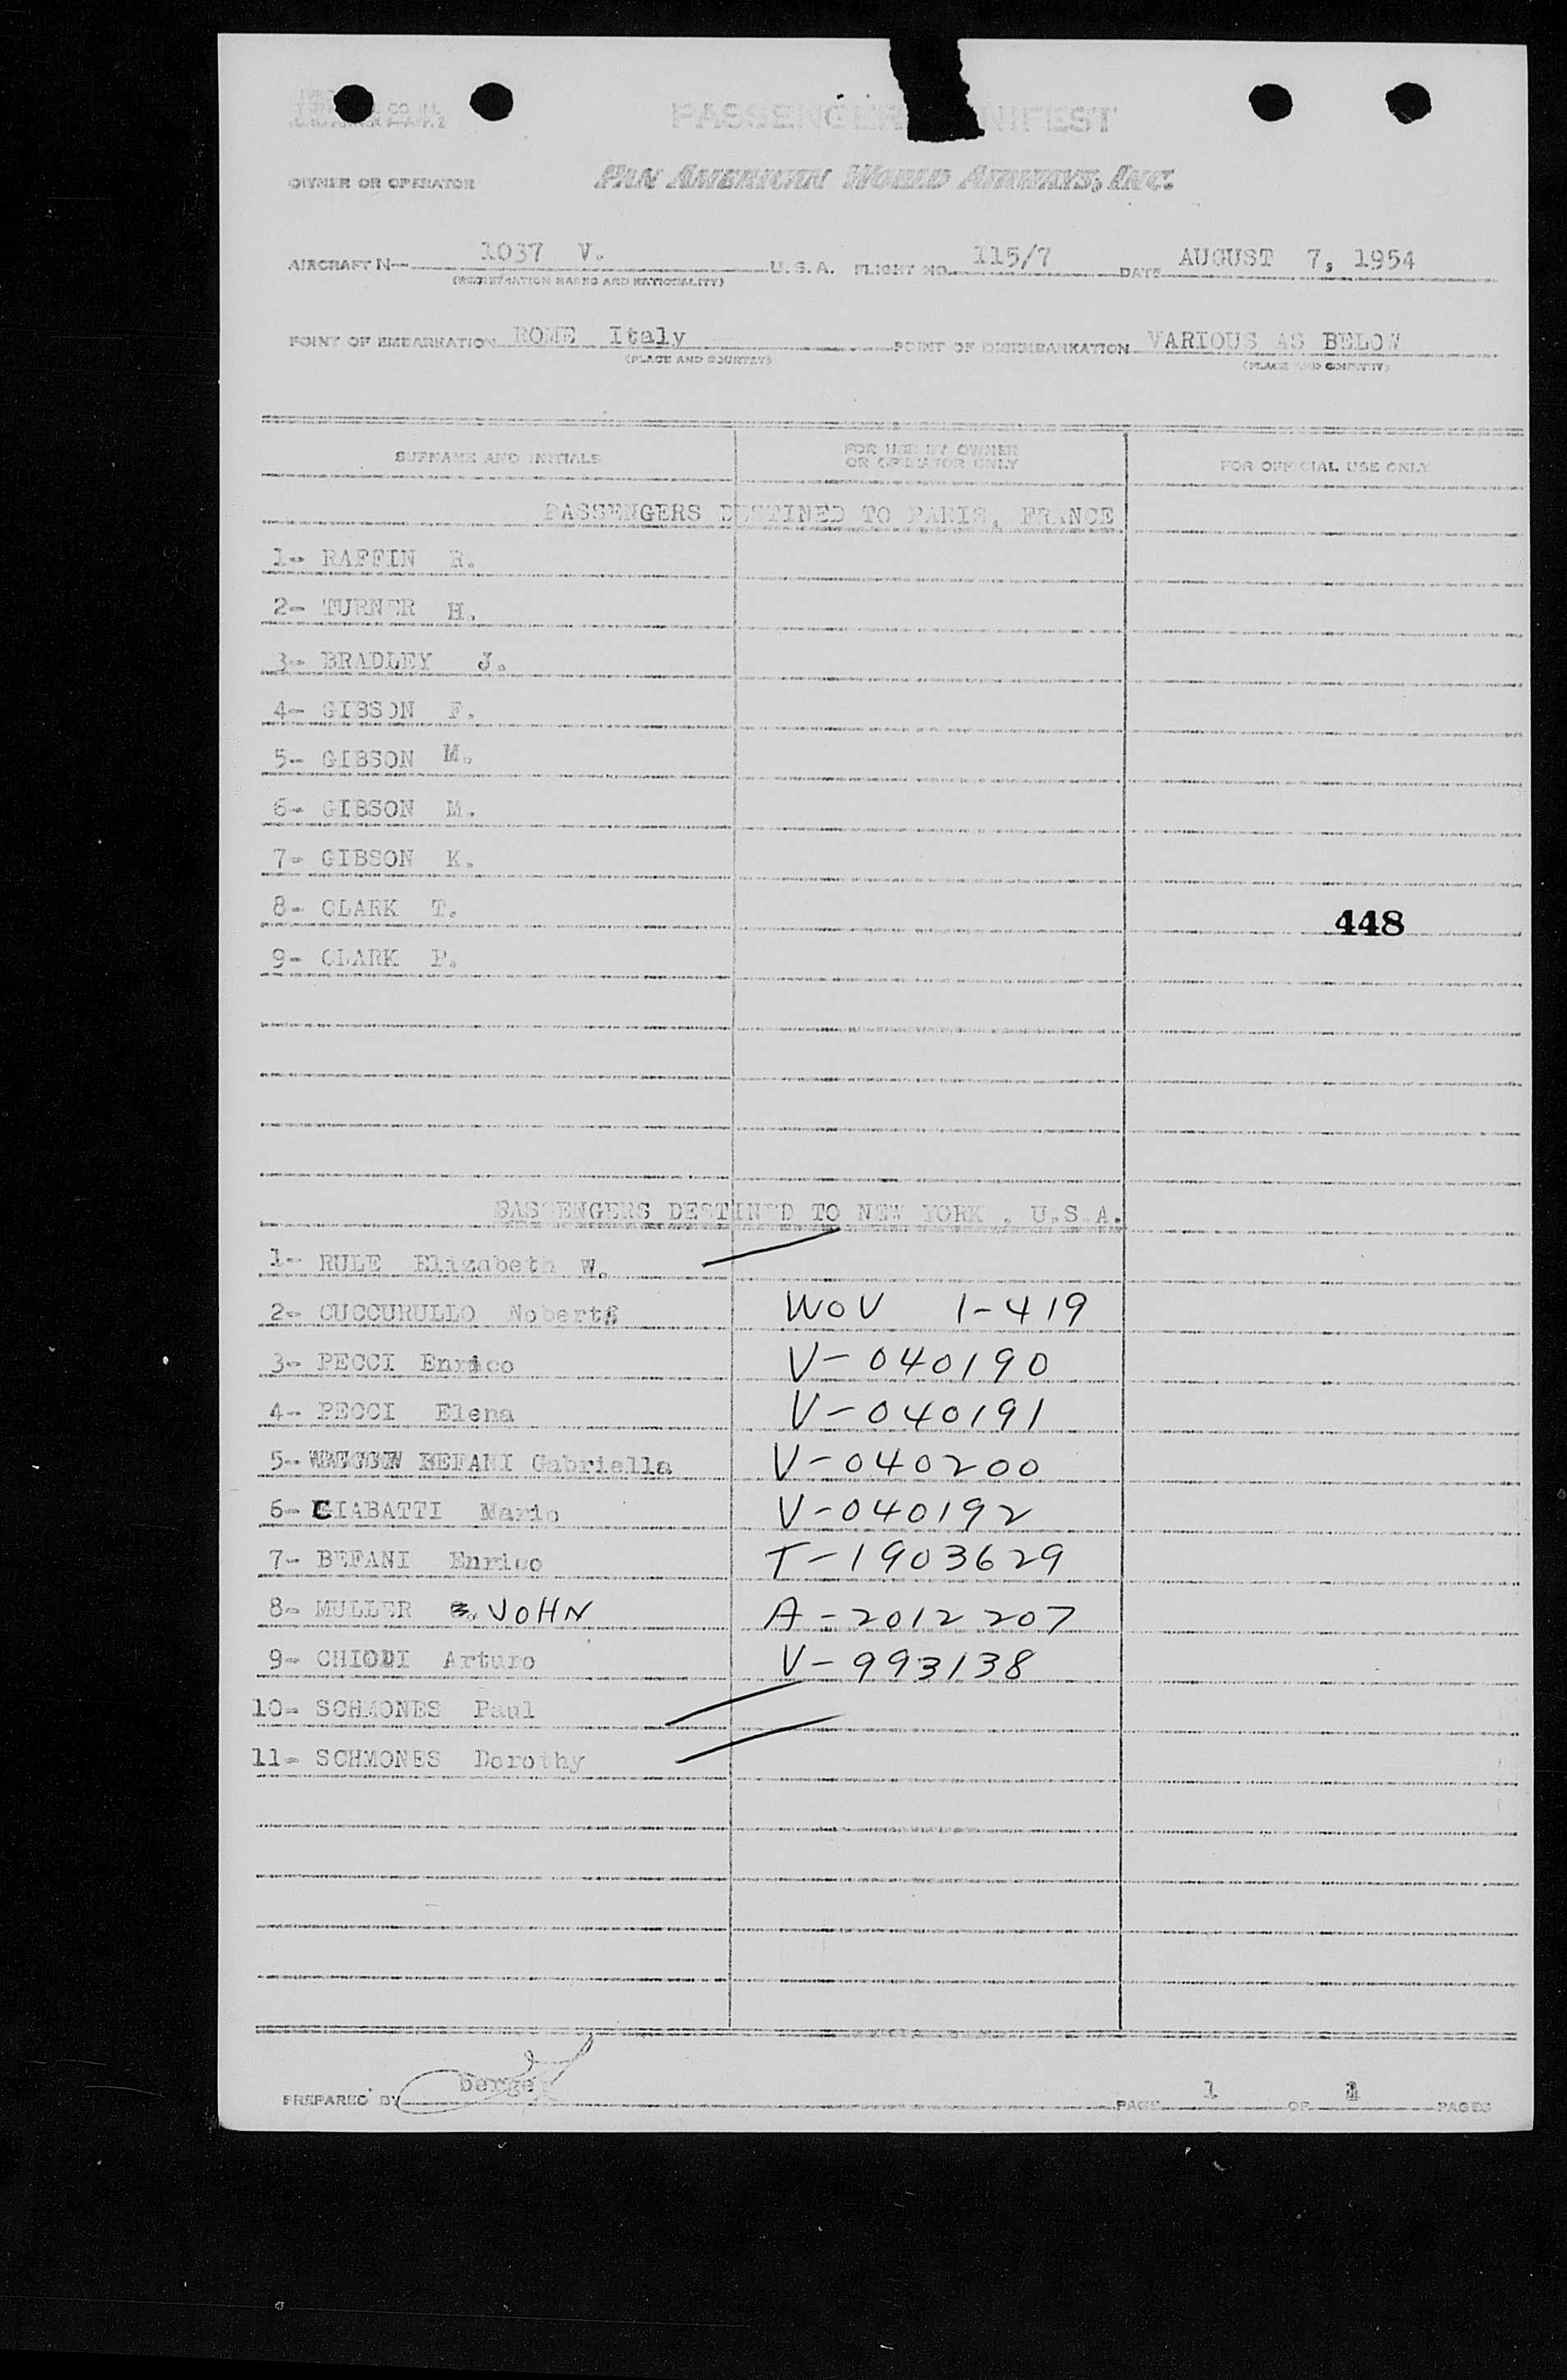 PASSENGER MANIFEST
OWNER OR OPERATOR PAN AMERICAN WORLD AIRWAYS, INC.
AIRCRAFT N— 1037 V. U. S. A. FLIGHT NO. 115/7 DATE AUGUST 7, 1954
(REGISTRATION MARKS AND NATIONALITY)
POINT OF EMBARKATION ROME Italy POINT OF DISEMBARKATION VARIOUS AS BELOW
(PLACE AND COUNTRY) (PLACE AND COUNTRY)
SURNAME AND INITIALS FOR USE BY OWNER OR OPERATOR ONLY FOR OFFICIAL USE ONLY
PASSENGERS DESTINED TO PARIS, FRANCE
1- RAFFIN R.
2- TURNER H.
3- BRADLEY J.
4- GIBSON F.
5- GIBSON M.
6- GIBSON M.
7- GIBSON K.
8- CLARK T. 448
9- CLARK P.
PASSENGERS DESTINED TO NEW YORK , U.S.A.
1- RULE Elizabeth W.
2- CUCCURULLO WOV 1-419
3- PECCI Enrico V-040190
4- PECCI Elena V-040191
5- BEFANI Gabriella V-040200
6- CIABATTI Mario V-040192
7- BEFANI Enrico T-1903629
8- MULLER JOHN A-2012207
9- CHIODI Arturo V-993138
10- SCHMONES Paul
11- SCHMONES Dorothy
PREPARED BY berge PAGE 1 OF 1 PAGES